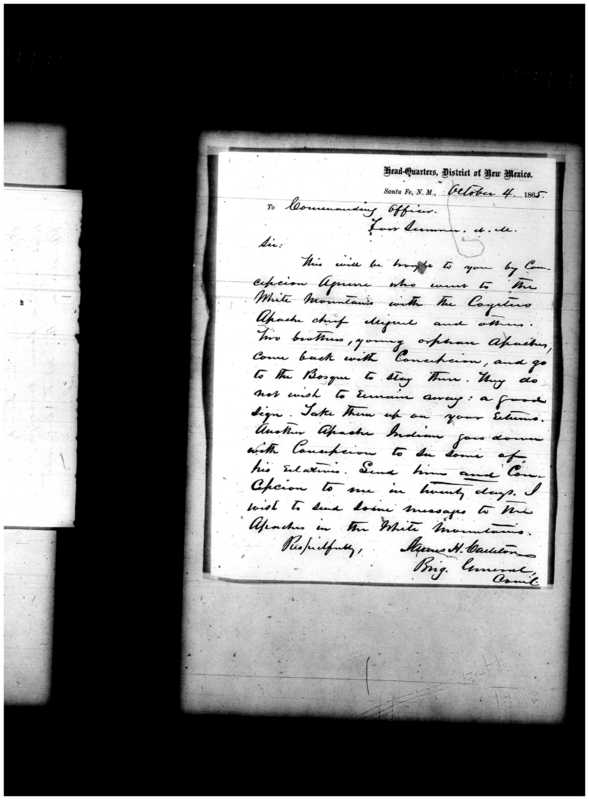 Head-Quarters, District of New Mexico.
Santa Fe, N. M., October 4. 1865.
To Commanding Officer.
Fort Sumner. N. M.
Sir:
This will be brought to you by Con-
cepcion Aguirre who went to the
White Mountains with the Coyotero
Apache chief Miguel and others.
Two brothers, young orphan Apaches,
come back with Concepcion, and go
to the Bosque to stay there. They do
not wish to remain away: a good
sign. Take them up on your returns.
Another Apache Indian goes down
with Concepcion to see some of
his relatives. Send him and Con-
cepcion to me in twenty days. I
wish to send some messages to the
Apaches in the White Mountains.
Respectfully,
James H. Carleton
Brig. General,
Com'g.